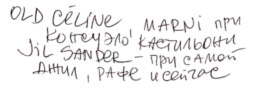 OLD CÉLINE MARNI при
Консуэло Кастильони
JIL SANDER – при самой
ДЖИЛ, РАФЕ и сейчас